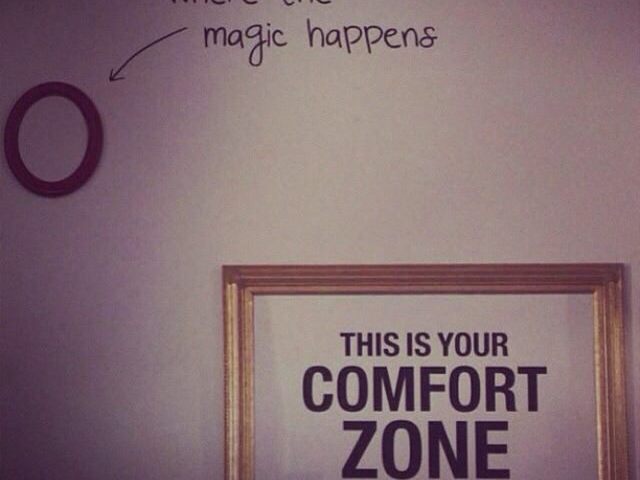 where the
magic happens
THIS IS YOUR
COMFORT
ZONE